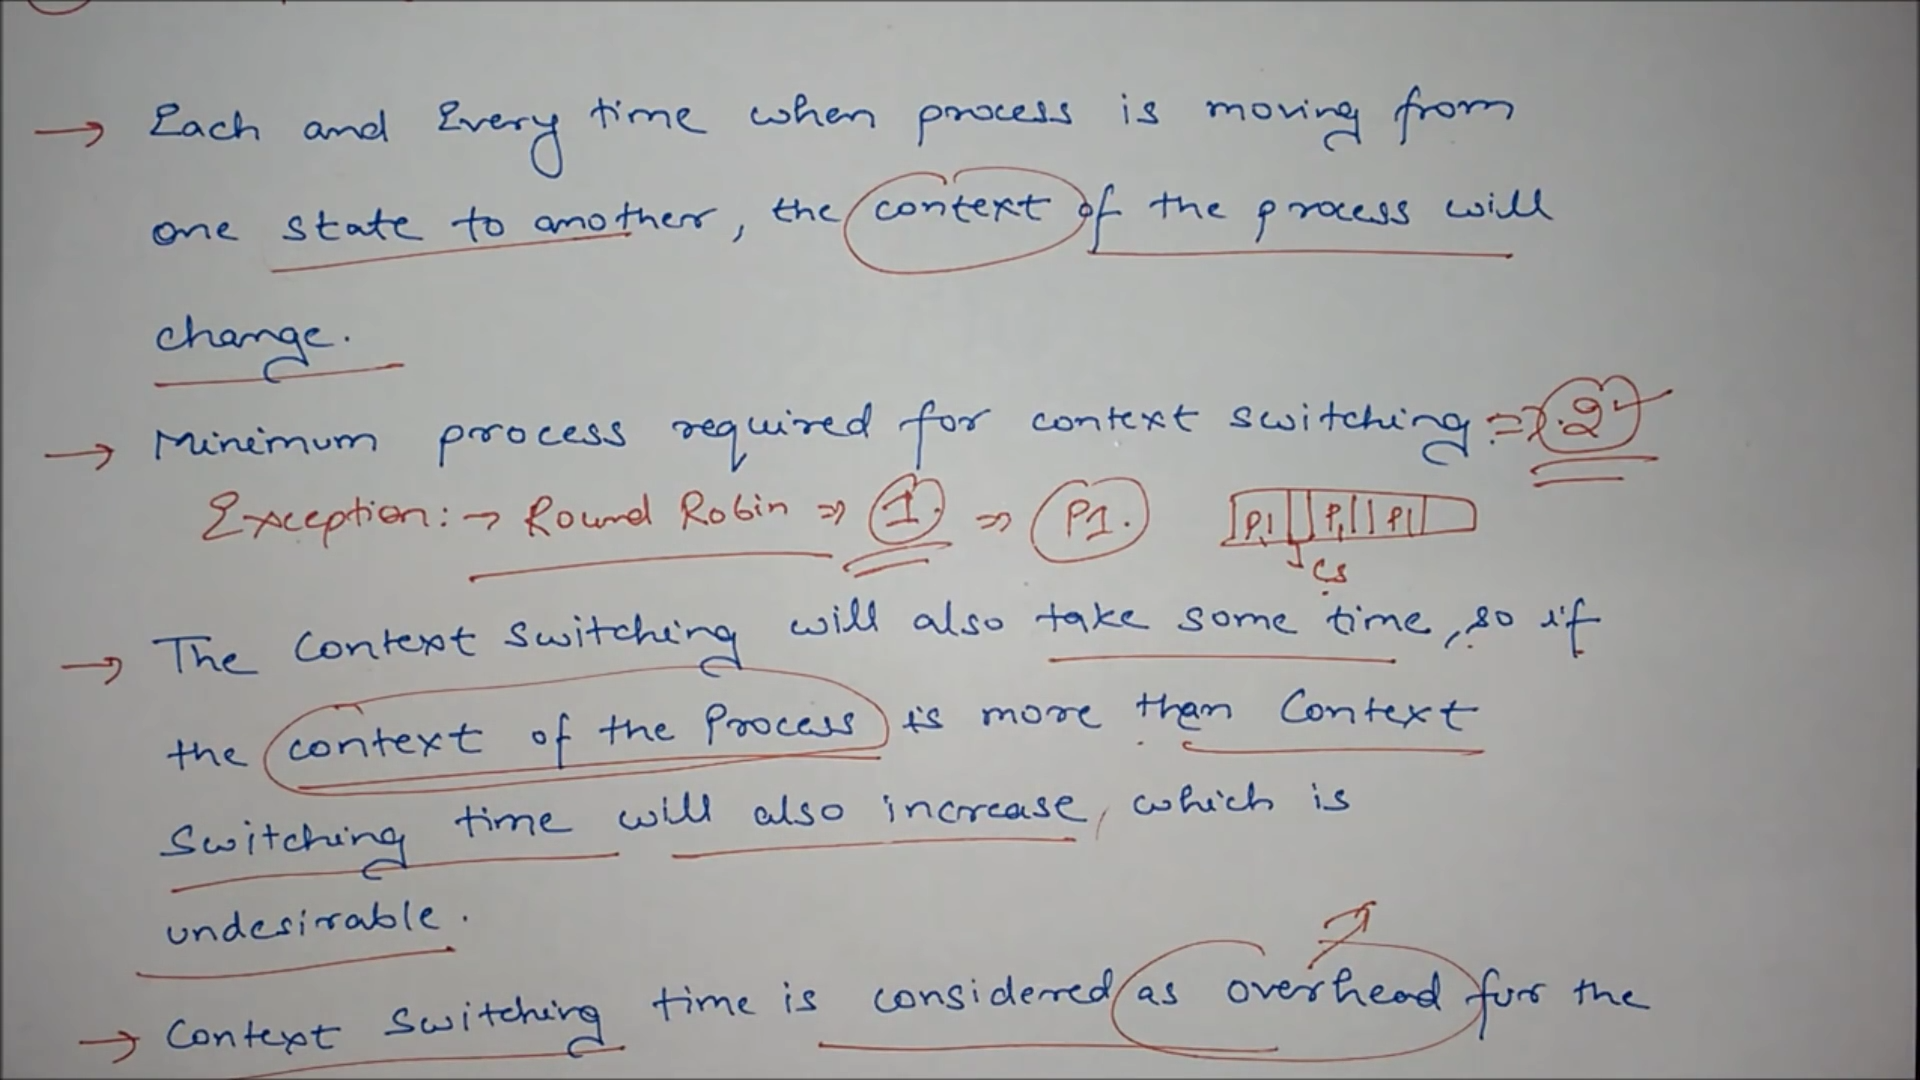 → Each and Every time when process is moving from
one state to another, the context of the process will
change.
→ Minimum process required for context switching => 2
Exception: → Round Robin => 1. => P1. P1 P1 P1
CS
→ The Context switching will also take some time, so if
the context of the Process is more than Context
Switching time will also increase, which is
undesirable.
→ Context Switching time is considered as overhead for the